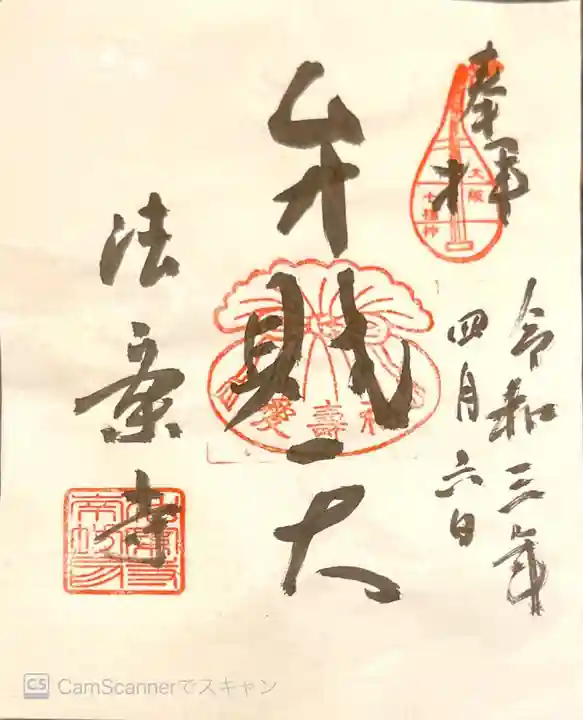 奉拝
大阪
七福神
令和三年
四月六日
弁財天
法案寺
CS CamScannerでスキャン